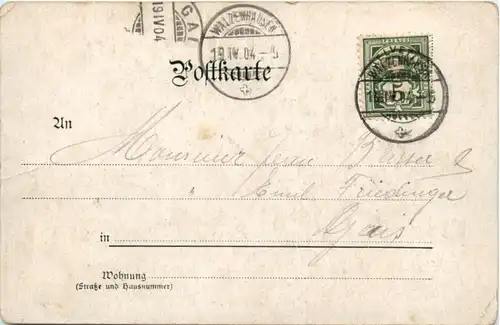 GAI
19 IV 04
WALZENHAUSEN
19.IV.04-5
Postkarte
WALZENHAUSEN
5
An
Monsieur Jean
Emil Friedinger
Gais
in
Wohnung
(Straße und Hausnummer)